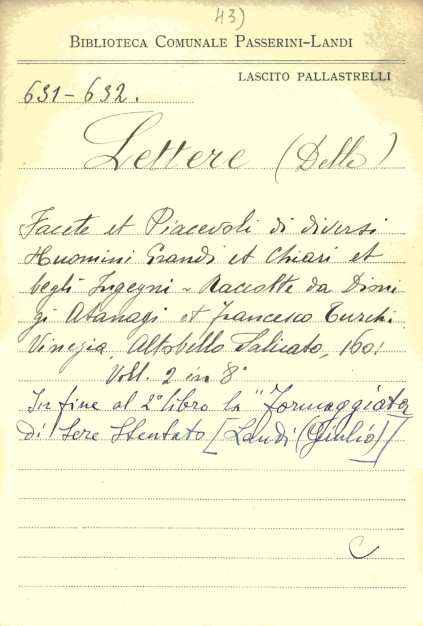 43)
BIBLIOTECA COMUNALE PASSERINI-LANDI
LASCITO PALLASTRELLI
631-632.
Lettere (Delle)
Facete et Piacevoli di diversi
Huomini Grandi et Chiari et
begli Ingegni - Raccolte da Dioni
gi Atanagi et Francesco Turchi
Vinegia, Altobello Salicato, 1601
Voll. 2 in 8°
In fine al 2° libro la "Formaggiata
di Sere Stentato [Landi (Giulio)]
C